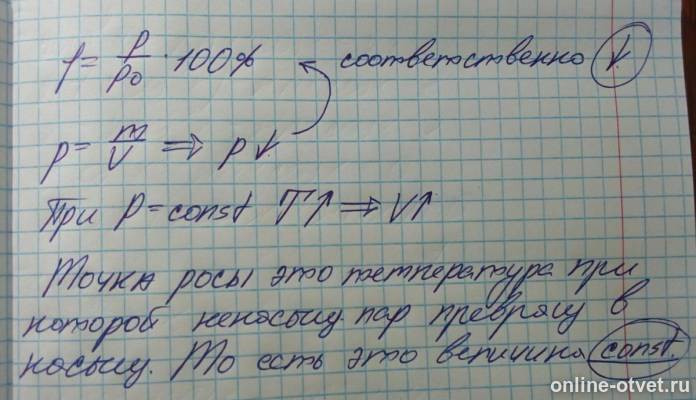 f = p/p₀ · 100% – соответственно ↓.
p = m/V ⇒ p↓
При P = const T↑ ⇒ V↑
Точка росы это температура при
которой ненасыщ пар превращ в
насыщ. То есть это величина const.
online-otvet.ru